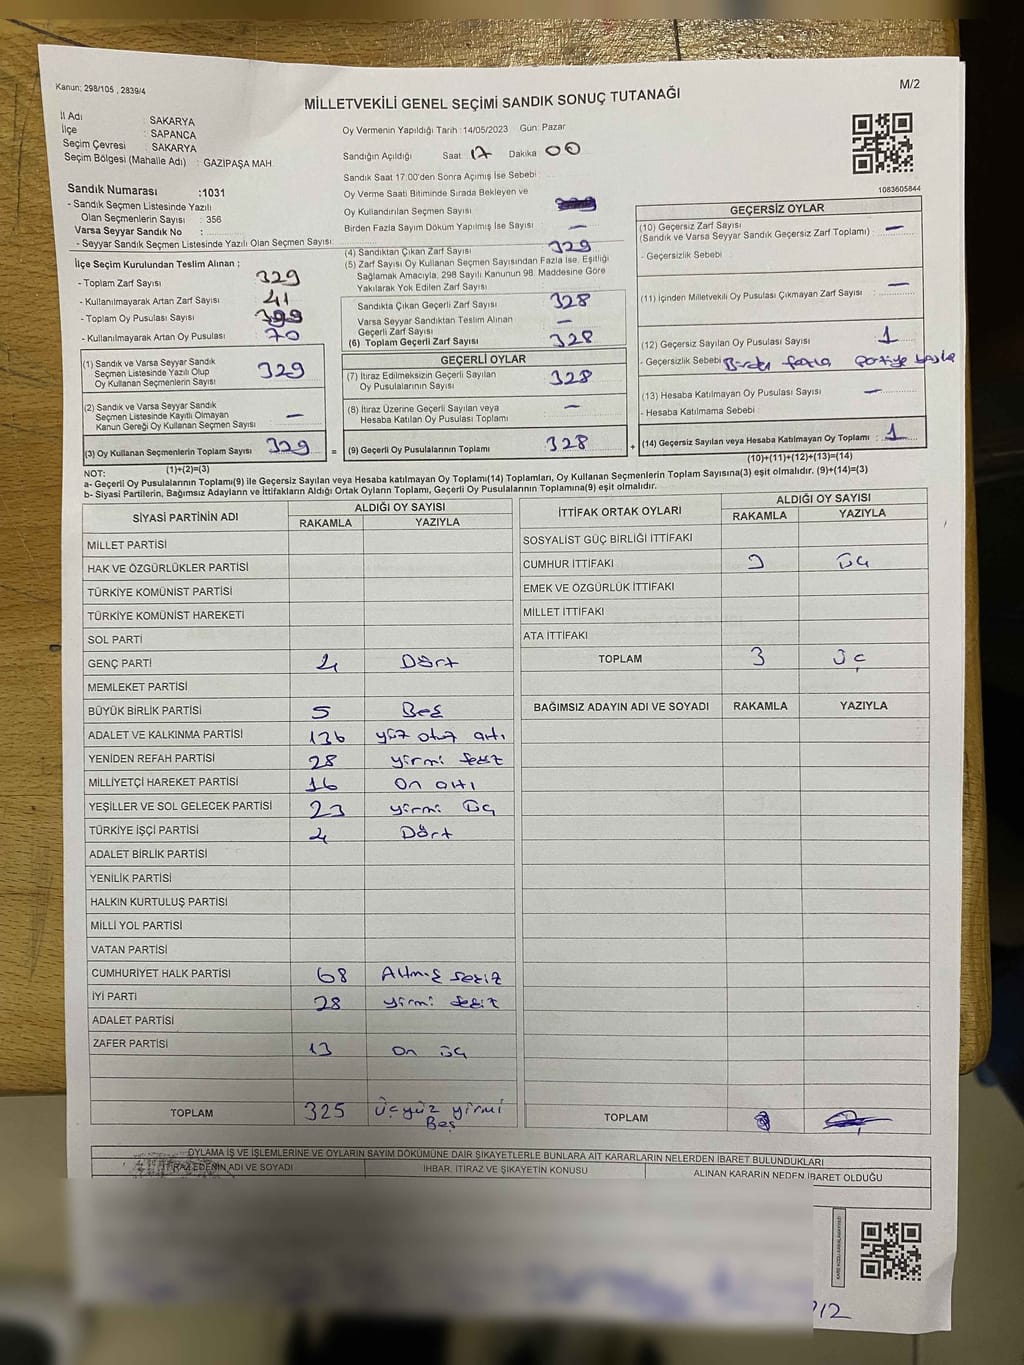 Kanun; 298/105 , 2839/4
M/2
MİLLETVEKİLİ GENEL SEÇİMİ SANDIK SONUÇ TUTANAĞI
İl Adı : SAKARYA
İlçe : SAPANCA
Seçim Çevresi : SAKARYA
Seçim Bölgesi (Mahalle Adı) : GAZİPAŞA MAH.
Oy Vermenin Yapıldığı Tarih :14/05/2023 Gün: Pazar
Sandığın Açıldığı Saat 17 Dakika 00
Sandık Saat 17:00'den Sonra Açımış İse Sebebi :
Oy Verme Saati Bitiminde Sırada Bekleyen ve
Oy Kullandırılan Seçmen Sayısı
Birden Fazla Sayım Döküm Yapılmış İse Sayısı —
1083605844
Sandık Numarası :1031
- Sandık Seçmen Listesinde Yazılı
Olan Seçmenlerin Sayısı : 356
Varsa Seyyar Sandık No :
- Seyyar Sandık Seçmen Listesinde Yazılı Olan Seçmen Sayısı:
İlçe Seçim Kurulundan Teslim Alınan ;
- Toplam Zarf Sayısı 329
- Kullanılmayarak Artan Zarf Sayısı 41
- Toplam Oy Pusulası Sayısı 399
- Kullanılmayarak Artan Oy Pusulası 70
(1) Sandık ve Varsa Seyyar Sandık
Seçmen Listesinde Yazılı Olup
Oy Kullanan Seçmenlerin Sayısı 329
(2) Sandık ve Varsa Seyyar Sandık
Seçmen Listesinde Kayıtlı Olmayan
Kanun Gereği Oy Kullanan Seçmen Sayısı —
(3) Oy Kullanan Seçmenlerin Toplam Sayısı 329
(1)+(2)=(3)
(4) Sandıktan Çıkan Zarf Sayısı 329
(5) Zarf Sayısı Oy Kullanan Seçmen Sayısından Fazla İse, Eşitliği
Sağlamak Amacıyla, 298 Sayılı Kanunun 98. Maddesine Göre
Yakılarak Yok Edilen Zarf Sayısı
Sandıkta Çıkan Geçerli Zarf Sayısı 328
Varsa Seyyar Sandıktan Teslim Alınan
Geçerli Zarf Sayısı —
(6) Toplam Geçerli Zarf Sayısı 328
GEÇERLİ OYLAR
(7) İtiraz Edilmeksizin Geçerli Sayılan
Oy Pusulalarının Sayısı 328
(8) İtiraz Üzerine Geçerli Sayılan veya
Hesaba Katılan Oy Pusulası Toplamı —
= (9) Geçerli Oy Pusulalarının Toplamı 328
GEÇERSİZ OYLAR
(10) Geçersiz Zarf Sayısı
(Sandık ve Varsa Seyyar Sandık Geçersiz Zarf Toplamı) : —
- Geçersizlik Sebebi :
(11) İçinden Milletvekili Oy Pusulası Çıkmayan Zarf Sayısı : —
(12) Geçersiz Sayılan Oy Pusulası Sayısı : 1
- Geçersizlik Sebebi Birden fazla partiye baskı
(13) Hesaba Katılmayan Oy Pusulası Sayısı : —
- Hesaba Katılmama Sebebi :
+ (14) Geçersiz Sayılan veya Hesaba Katılmayan Oy Toplamı : 1
(10)+(11)+(12)+(13)=(14)
NOT:
a- Geçerli Oy Pusulalarının Toplamı(9) ile Geçersiz Sayılan veya Hesaba katılmayan Oy Toplamı(14) Toplamları, Oy Kullanan Seçmenlerin Toplam Sayısına(3) eşit olmalıdır. (9)+(14)=(3)
b- Siyasi Partilerin, Bağımsız Adayların ve İttifakların Aldığı Ortak Oyların Toplamı, Geçerli Oy Pusulalarının Toplamına(9) eşit olmalıdır.
SİYASİ PARTİNİN ADI ALDIĞI OY SAYISI
RAKAMLA YAZIYLA
MİLLET PARTİSİ
HAK VE ÖZGÜRLÜKLER PARTİSİ
TÜRKİYE KOMÜNİST PARTİSİ
TÜRKİYE KOMÜNİST HAREKETİ
SOL PARTİ
GENÇ PARTİ 4 Dört
MEMLEKET PARTİSİ
BÜYÜK BİRLİK PARTİSİ 5 Beş
ADALET VE KALKINMA PARTİSİ 136 yüz otuz altı
YENİDEN REFAH PARTİSİ 28 yirmi sekiz
MİLLİYETÇİ HAREKET PARTİSİ 16 On altı
YEŞİLLER VE SOL GELECEK PARTİSİ 23 yirmi üç
TÜRKİYE İŞÇİ PARTİSİ 4 Dört
ADALET BİRLİK PARTİSİ
YENİLİK PARTİSİ
HALKIN KURTULUŞ PARTİSİ
MİLLİ YOL PARTİSİ
VATAN PARTİSİ
CUMHURİYET HALK PARTİSİ 68 Altmış sekiz
İYİ PARTİ 28 yirmi sekiz
ADALET PARTİSİ
ZAFER PARTİSİ 13 On üç
TOPLAM 325 üçyüz yirmi
Beş
İTTİFAK ORTAK OYLARI ALDIĞI OY SAYISI
RAKAMLA YAZIYLA
SOSYALİST GÜÇ BİRLİĞİ İTTİFAKI
CUMHUR İTTİFAKI 3 Üç
EMEK VE ÖZGÜRLÜK İTTİFAKI
MİLLET İTTİFAKI
ATA İTTİFAKI
TOPLAM 3 üç
BAĞIMSIZ ADAYIN ADI VE SOYADI RAKAMLA YAZIYLA
TOPLAM
OYLAMA İŞ VE İŞLEMLERİNE VE OYLARIN SAYIM DÖKÜMÜNE DAİR ŞİKAYETLERLE BUNLARA AİT KARARLARIN NELERDEN İBARET BULUNDUKLARI
İTİRAZ EDENİN ADI VE SOYADI
İHBAR, İTİRAZ VE ŞİKAYETİN KONUSU
ALINAN KARARIN NEDEN İBARET OLDUĞU